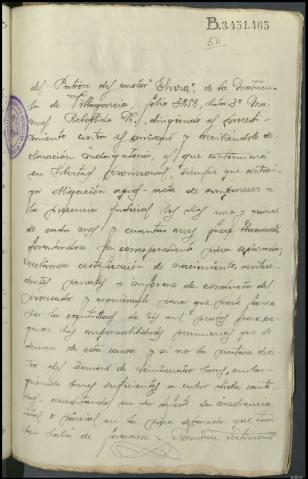 B.3.451.465
50
del Patrón del motor "Elvira", de la Matricu-
la de Villagarcia, folio 3.858, lista 3ª Ma-
nuel Rebollido Rº, dirigiendo al procedi-
miento contra el mismo y recibiéndole de-
claración indagatoria, el que continuara
en libertad provisional, siempre que contrai-
ga obligación apud-acta de comparecer a
la presencia judicial los dias uno y quince
de cada mes y cuantas veces fuere llamado
formandose la correspondiente pieza separada;
certificación de nacimiento, antece-
dentes penales e informes de conducta del
procesado y requierasele para que preste fianza
por la cantidad de mil pesetas para ase-
gurar las responsabilidades pecuniarias que se
deriven de esta causa y si no la prestare den-
tro del termino de veinticuatro horas, embar-
guensele bienes suficientes a cubrir dicha canti-
dad, acreditando en su defecto su insolvencia
total o parcial en la pieza separada que tam-
bien habrá de formarse =